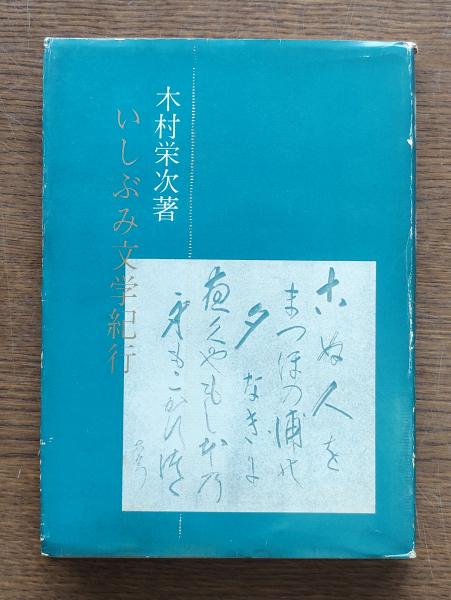 木村栄次著
いしぶみ文学紀行
こぬ人を
まつほの浦の
夕なぎに
やくやもしほの
身もこがれつゝ